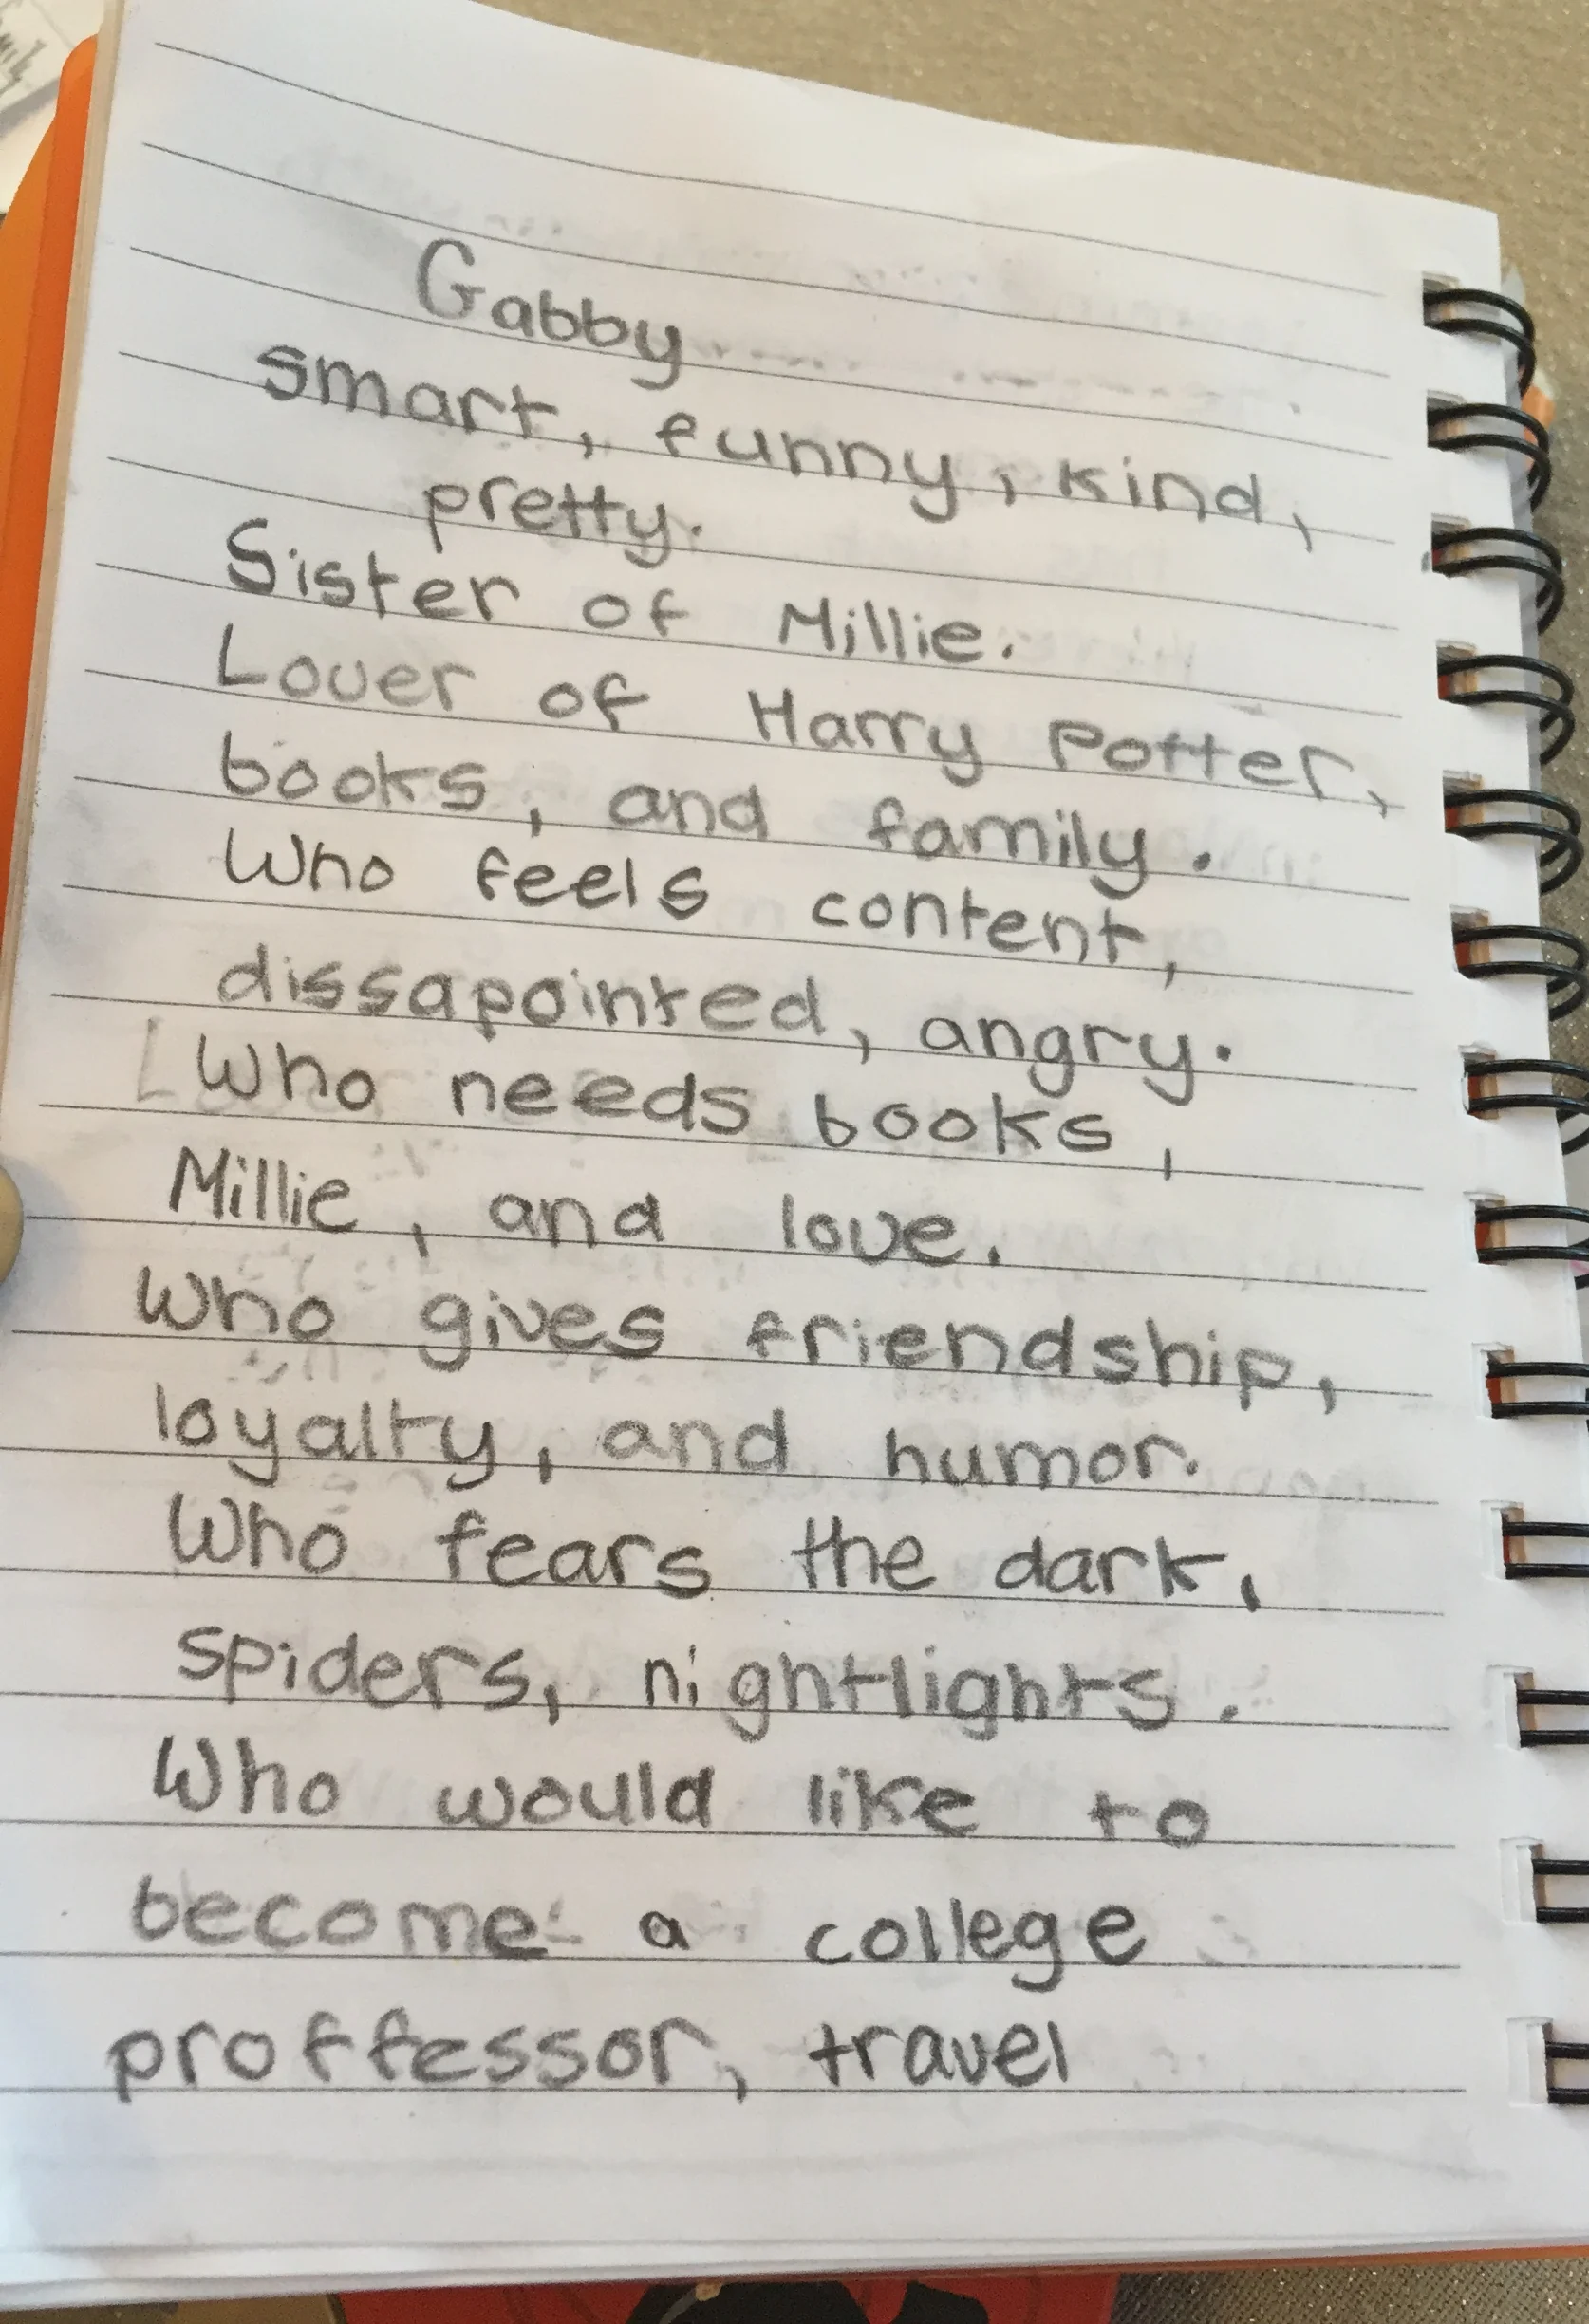 Gabby
smart, funny, kind,
pretty.
Sister of Millie.
Lover of Harry Potter,
books, and family.
Who feels content,
dissapointed, angry.
Who needs books,
Millie, and love.
Who gives friendship,
loyalty, and humor.
Who fears the dark,
spiders, nightlights.
Who would like to
become a college
proffessor, travel